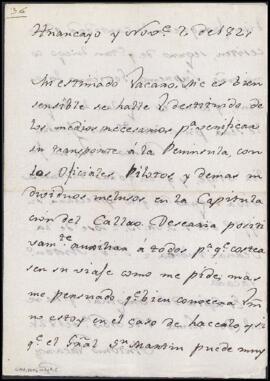 36
Huancayo y Nov.e 2 de 1821
Mi estimado Vacaro. Me es bien
sensible se halle V. destituido de
los medios necesarios p.a verificar
su transporte á la Peninsula, con
los Oficiales Pilotos y demas in
dividuos inclusos en la Capitula
cion del Callao. Desearia positi
vam.te auxiliar á todos p.a q.e costea
sen su viaje como me pide, mas
me persuado q.e bien conocerá
no estoy en el caso de hacerlo, y si
q.e el Gral Sn Martin puede muy